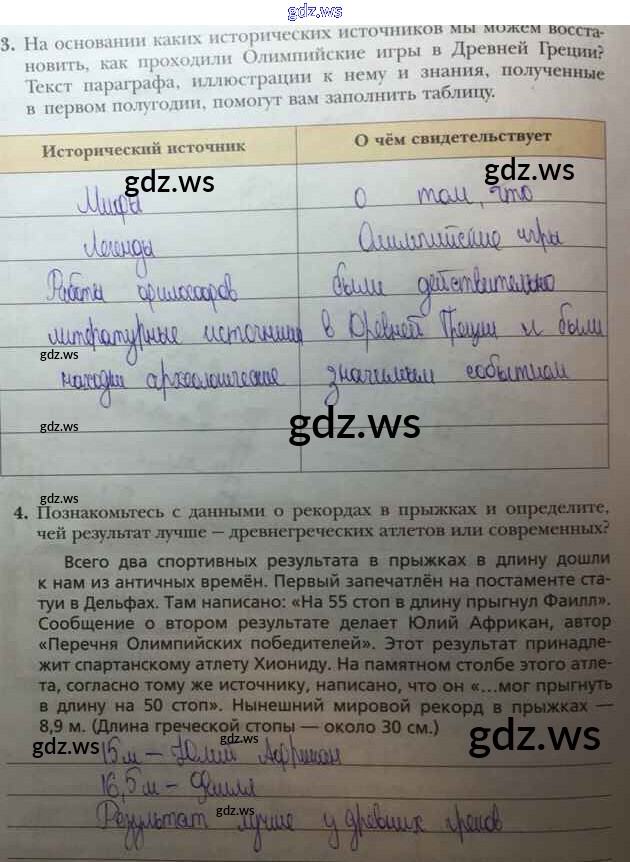 gdz.ws
3. На основании каких исторических источников мы можем восста-
новить, как проходили Олимпийские игры в Древней Греции?
Текст параграфа, иллюстрации к нему и знания, полученные
в первом полугодии, помогут вам заполнить таблицу.
Исторический источник О чём свидетельствует
gdz.ws gdz.ws
Мифы о том, что
Легенды Олимпийские игры
Работы философов были действительно
литературные источники в Древней Греции и были
gdz.ws
находки археологические значимым событием
gdz.ws gdz.ws
gdz.ws
4. Познакомьтесь с данными о рекордах в прыжках и определите,
чей результат лучше — древнегреческих атлетов или современных?
Всего два спортивных результата в прыжках в длину дошли
к нам из античных времён. Первый запечатлён на постаменте ста-
туи в Дельфах. Там написано: «На 55 стоп в длину прыгнул Фаилл».
Сообщение о втором результате делает Юлий Африкан, автор
«Перечня Олимпийских победителей». Этот результат принадле-
жит спартанскому атлету Хиониду. На памятном столбе этого атле-
та, согласно тому же источнику, написано, что он «...мог прыгнуть
в длину на 50 стоп». Нынешний мировой рекорд в прыжках —
8,9 м. (Длина греческой стопы — около 30 см.)
gdz.ws gdz.ws
15м – Юлий Африкан
gdz.ws
16,5м – Фаилл
gdz.ws
Результат лучше у древних греков
gdz.ws